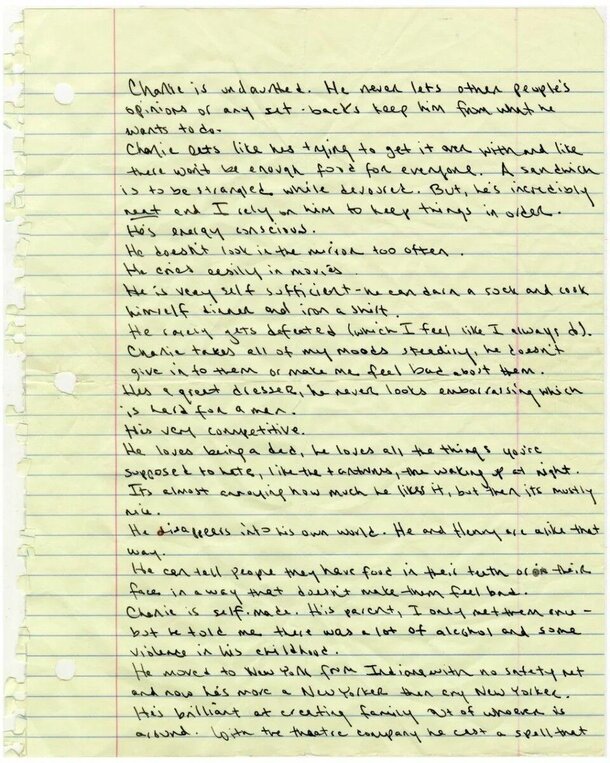 Charlie is undaunted. He never lets other people's
opinions or any set-backs keep him from what he
wants to do.
Charlie eats like hes trying to get it over with and like
there won't be enough food for everyone. A sandwich
is to be strangled while devoured. But, he's incredibly
neat and I rely on him to keep things in order.
He's energy conscious.
He doesn't look in the mirror too often.
He cries easily in movies.
He is very self sufficient-he can darn a sock and cook
himself dinner and iron a shirt.
He rarely gets defeated (which I feel like I always do).
Charlie takes all of my moods steadily, he doesn't
give in to them or make me feel bad about them.
Hes a great dresser, he never looks embarrasing which
is hard for a man.
He's very competitive.
He loves being a dad, he loves all the things you're
supposed to hate, like the tantrums, the waking up at night.
Its almost annoying how much he likes it, but then its mostly
nice.
He disappears into his own world. He and Henry are alike that
way.
He can tell people they have food in their teeth or on their
face in a way that doesn't make them feel bad.
Charlie is self-made. His parent, I only met them once-
but he told me there was a lot of alcohol and some
violence in his childhood.
He moved to New York from Indiana with no safety net
and now he's more a New Yorker then any New Yorker.
He's brilliant at creating family out of whoever is
around. With the theatre company he cast a spell that